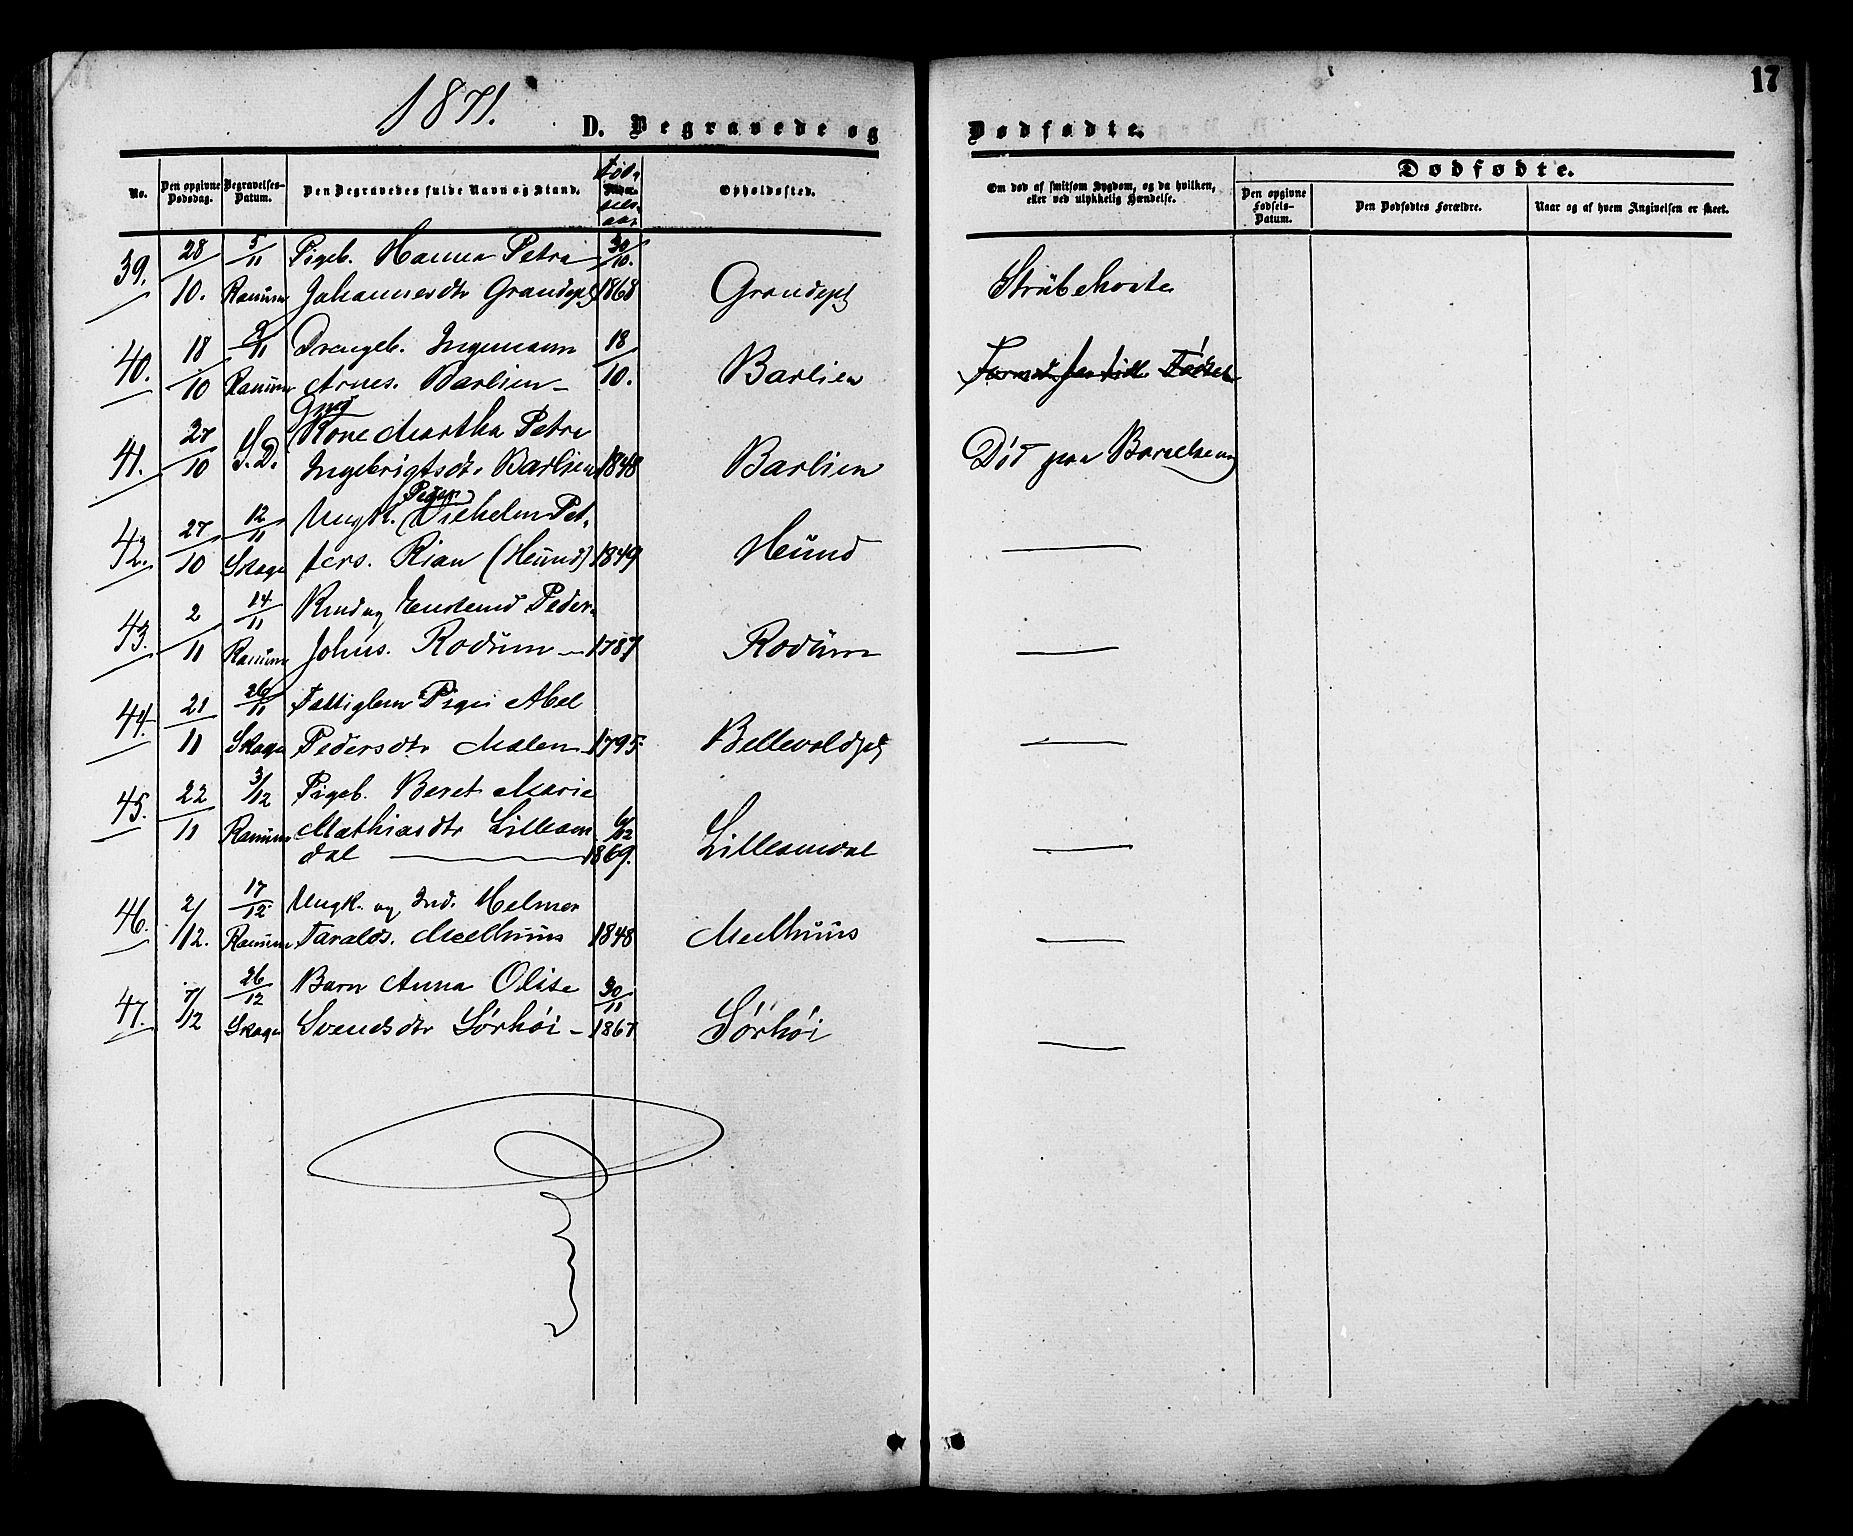 1871.
17
D. Begravede og
Dødfødte.
No.
Den opgivne Dødsdag.
Begravelses-Datum.
Den Begravedes fulde Navn og Stand.
Fød-
sels-
aar
Opholdssted.
Om død af smitsom Sygdom, og da hvilken, eller ved ulykkelig Hændelse.
Dødfødte.
Den opgivne Fødsels-Datum.
Den Dødfødtes Forældre.
Naar og af hvem Angivelsen er skeet.
39. 28/10. 5/11 Pigeb. Hanna Petra 30/10.
Ranum Johannesdtr Grandepl 1868 Grandepl Strubehoste
40. 18/10 9/11 Drengeb. Ingemann 18/10.
Ranum Arnes. Barlien Barlien
Gmd
41. 27/10 S. D. Kone Martha Petra
Ingebrigtsdtr Barlien 1848 Barlien Død paa Barselseng
42. 27/10 12/11 Ungk. Vilhelm Pet-
Skage ters. Rian (Heund) 1849 Heund
43. 2/11 14/11 Peder
Ranum Johns. Rodum 1787 Rodum
44. 21/11 26/11 Fattiglem Pige Abel
Skage Pedersdtr Moen 1795. Bellevoldpl
45. 22/11 3/12 Pigeb. Beret Marie
Ranum Mathiasdtr Lilleam 6/12
dal 1869. Lilleamdal
46. 2/12. 17/12. Ungk. og Ind. Helmer
Ranum Taralds. Meelhuus 1848 Meelhuus
47. 7/12 26/12 Barn Anna Olise 30/11
Skage Svendsdtr Sørhøi 1867 Sørhøi